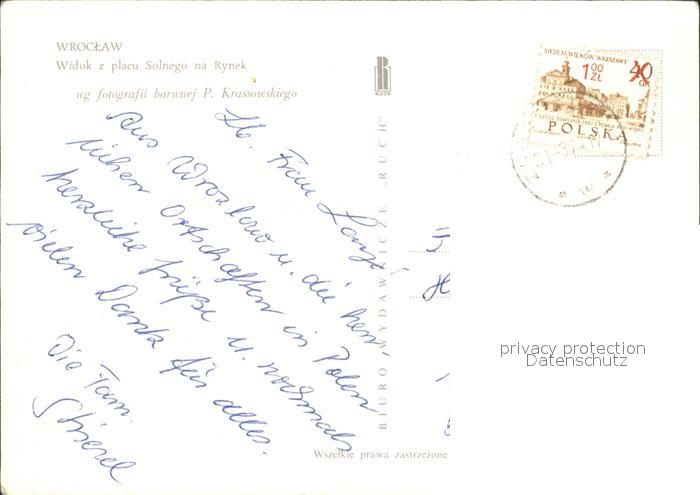 WROCŁAW
Widok z placu Solnego na Rynek
wg fotografii barwnej P. Krassowskiego
RUCH
SIEDEM WIEKÓW WARSZAWY
1,00 ZŁ
40 GR
POLSKA
Lb. Frau
Aus Wrozlaw u. die
Ortschaften in Polen
herzliche Grüße u. nochmals
vielen Dank für alles.
Die Fam.
BIURO WYDAWNICZE „RUCH"
privacy protection
Datenschutz
Wszelkie prawa zastrzeżone